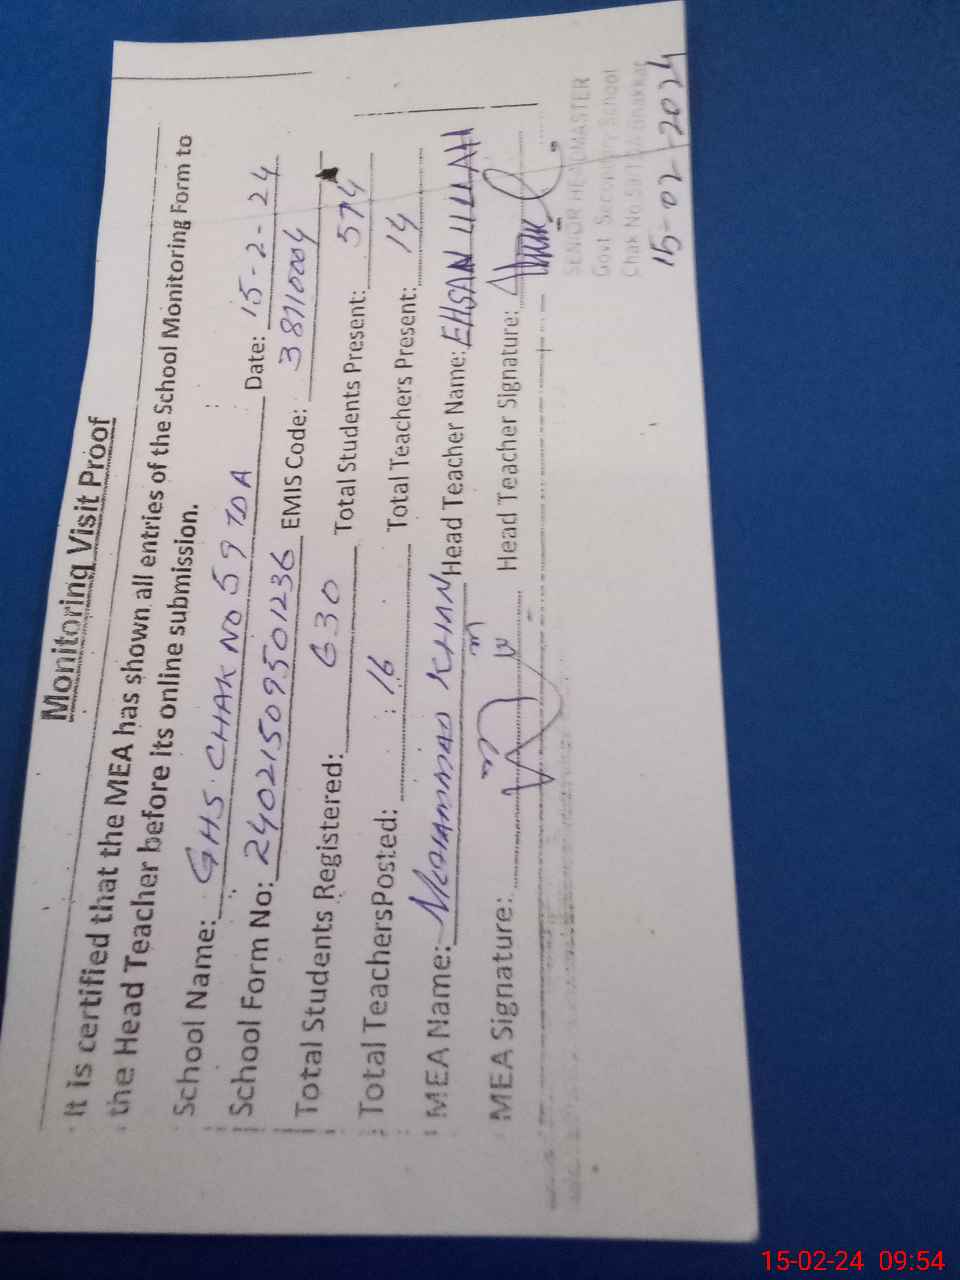 Monitoring Visit Proof
It is certified that the MEA has shown all entries of the School Monitoring Form to
the Head Teacher before its online submission.
School Name: GHS. CHAK NO 59 TDA Date: 15-2-24
School Form No: 24021509501236 EMIS Code: 38710004
Total Students Registered: 630 Total Students Present: 574
Total TeachersPosted: 16 Total Teachers Present: 14
MEA Name: MUHAMMAD KHAN Head Teacher Name: EHSAN ULLAH
MEA Signature: Head Teacher Signature:
SENIOR HEADMASTER
Govt. Secondary School
Chak No.59 Bhakkar
15-02-2024
15-02-24 09:54